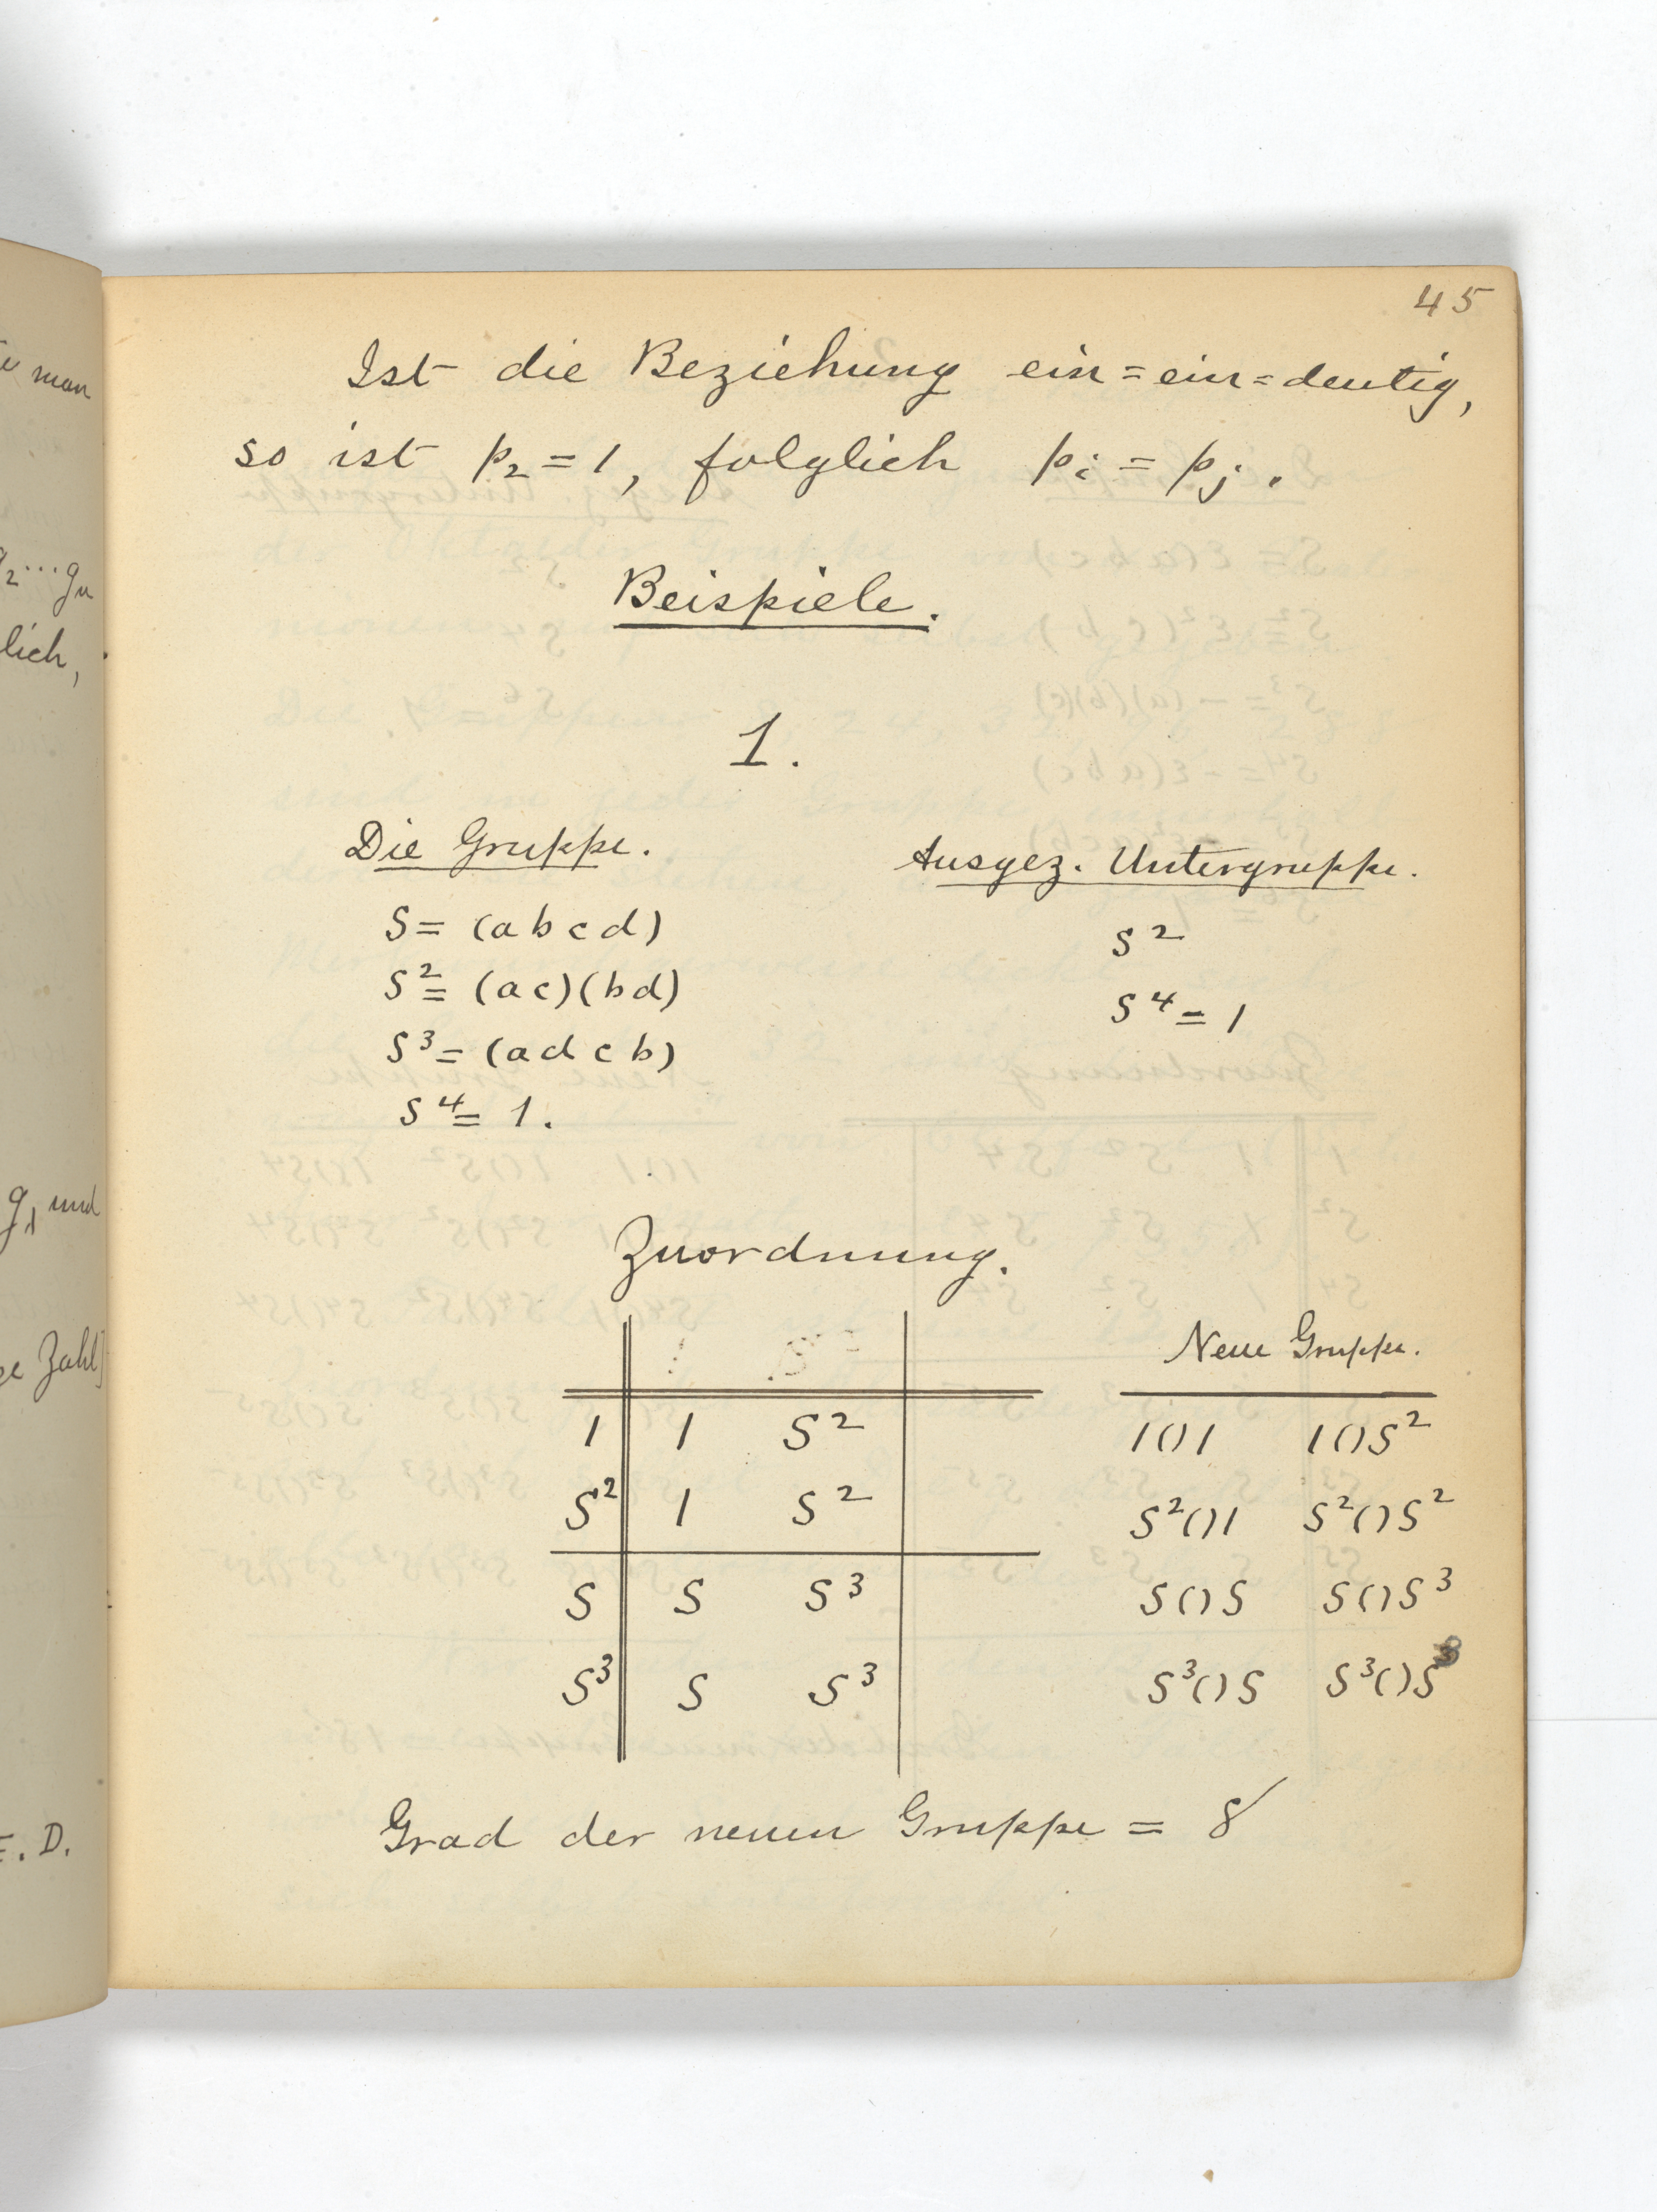 45
Ist die Beziehung ein=ein=deutig,
so ist p₂ = 1, folglich pᵢ = pⱼ.
Beispiele.
1.
Die Gruppe.
S = (a b c d)
S² = (a c)(b d)
S³ = (a d c b)
S⁴ = 1.
Ausgez. Untergruppe.
S²
S⁴ = 1
Zuordnung.
1 1 S²
S² 1 S²
S S S³
S³ S S³
Neue Gruppe.
1()1 1()S²
S²()1 S²()S²
S()S S()S³
S³()S S³()S³
Grad der neuen Gruppe = 8
man
g₂...gₙ
lich,
g₁ und
Zahl]
E. D.